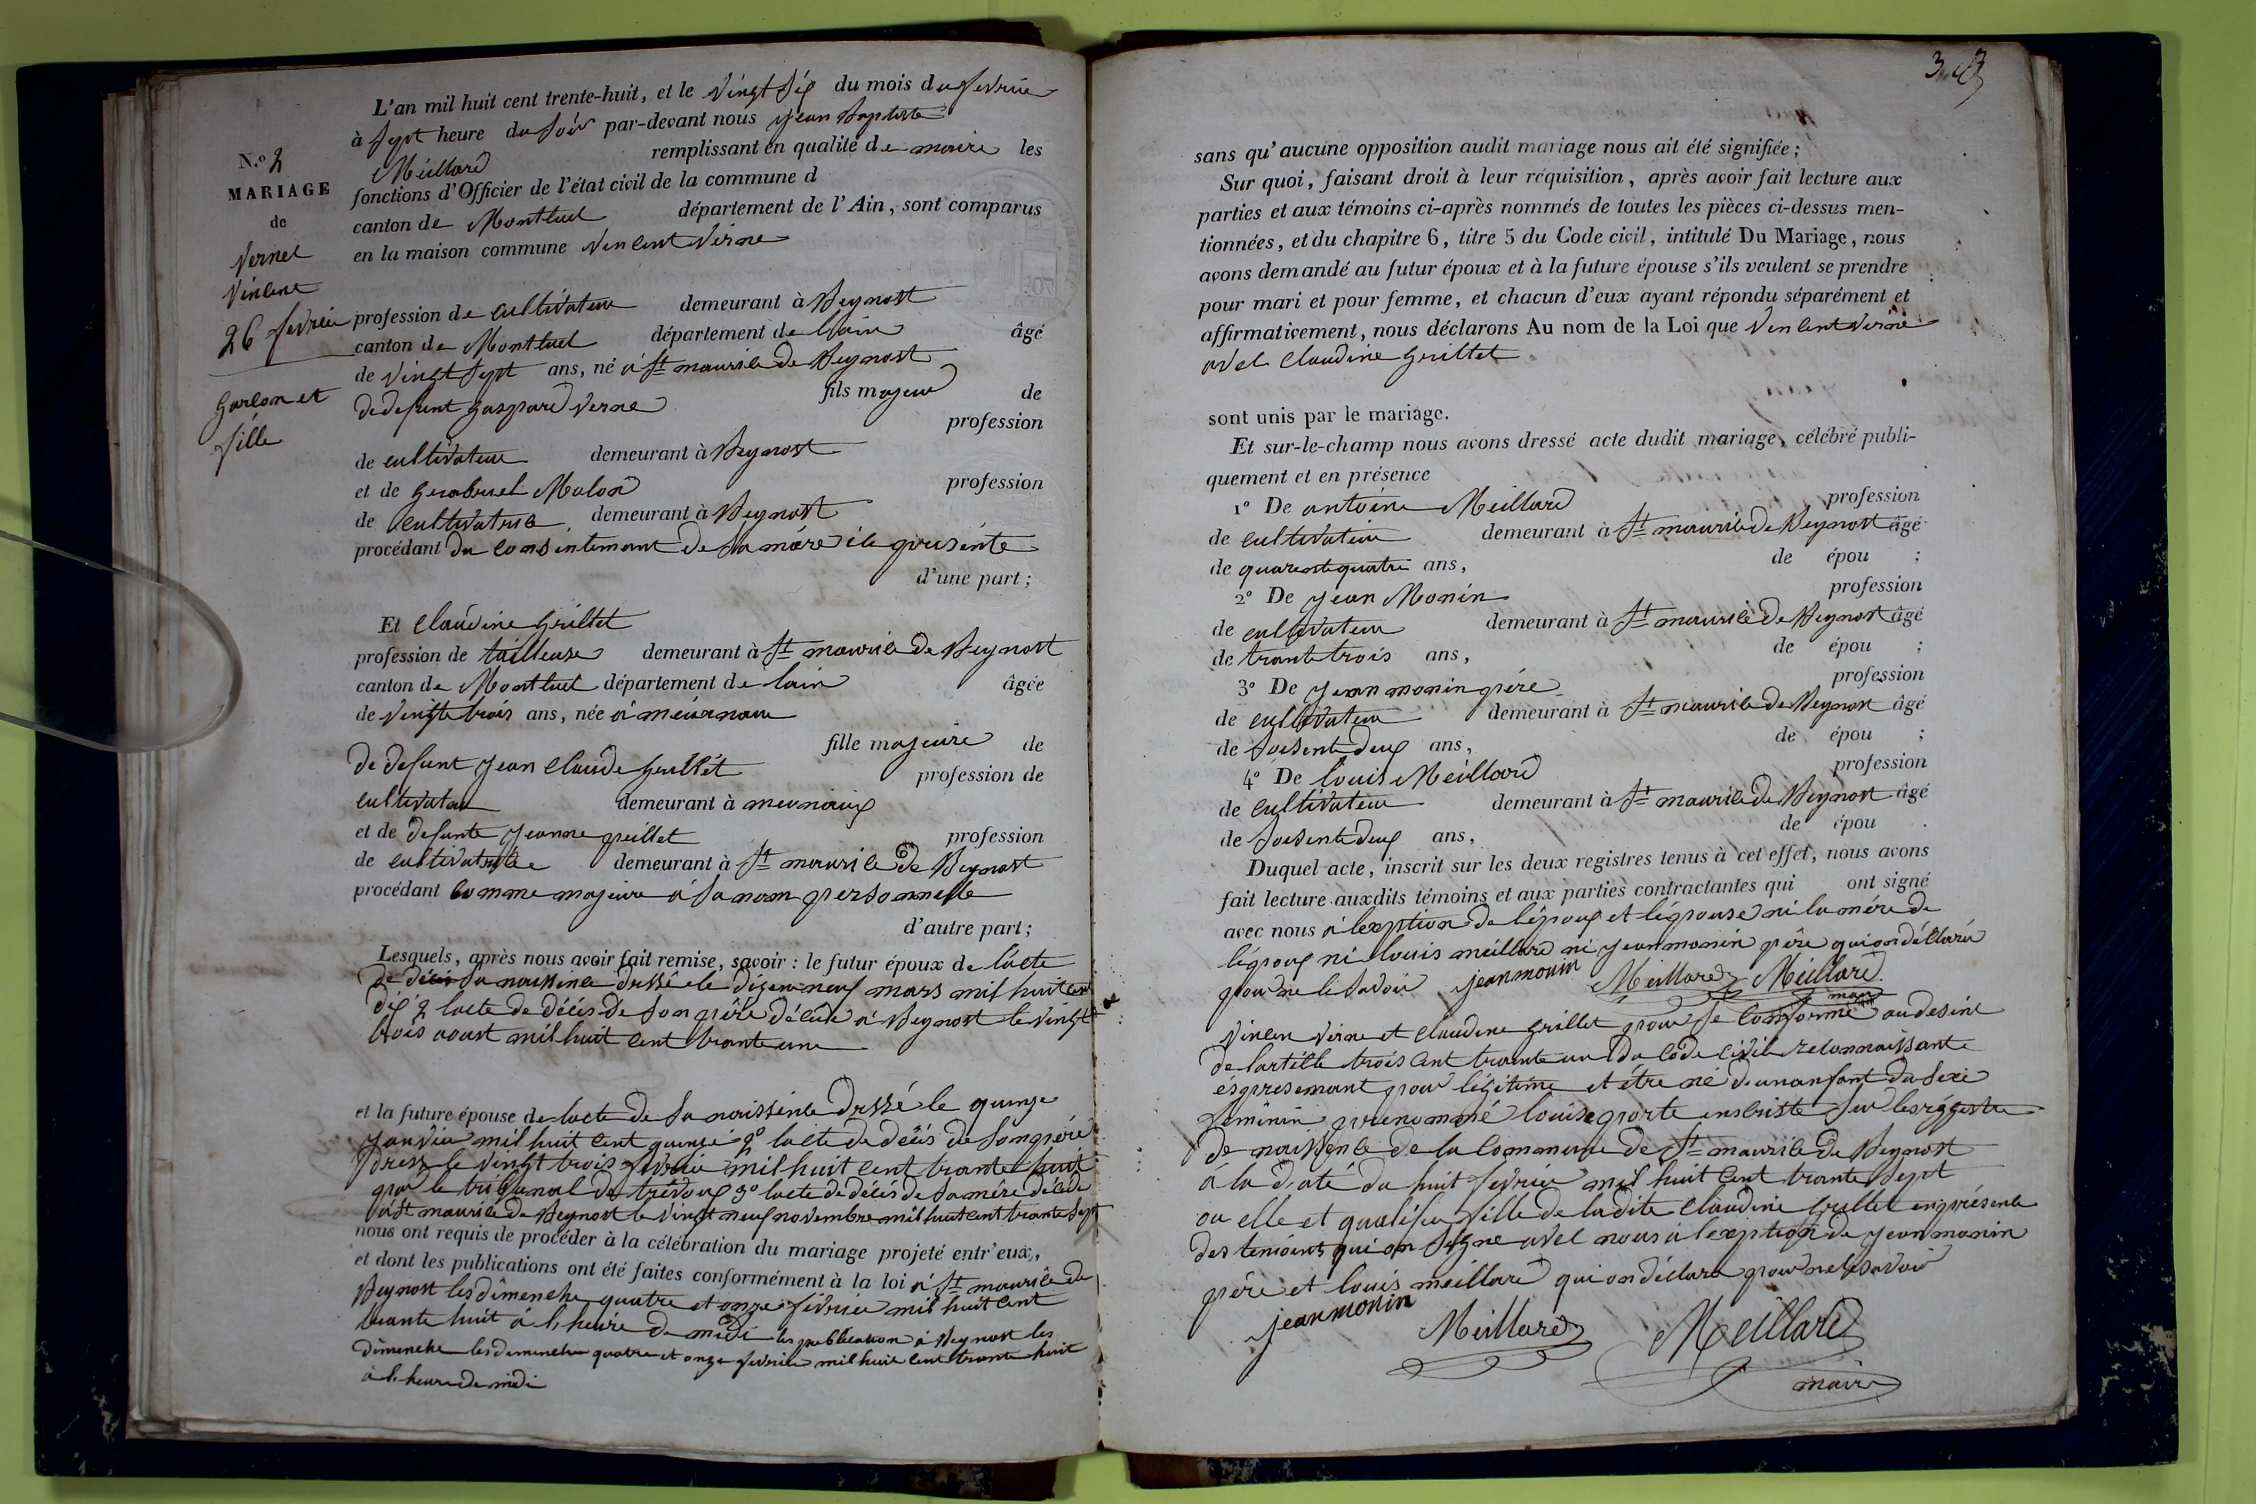 L'an mil huit cent trente-huit, et le vingt six du mois de fevrier
à sept heure du soir par-devant nous jean Baptiste
Meillard remplissant en qualité de maire les
fonctions d'Officier de l'état civil de la commune d
canton de Montluel département de l'Ain, sont comparus
en la maison commune vincent verne
N.º 2
MARIAGE
de
Vernel
Vincent
26 fevrier
garcon et
fille
profession de cultivateur demeurant à Beynost
canton de Montluel département de lain âgé
de vingt sept ans, né à St maurice de Beynost
fils majeur de
de defunt gaspard verne
profession
de cultivateur demeurant à Beynost
et de profession
de cultivatrice demeurant à Beynost
procédant du consintemant de sa mère ile présente
d'une part;
Et claudine grillet
profession de tailleuse demeurant à St maurice de Beynost
canton de Montluel département de lain âgée
de vingte trois ans, née à
fille majeure de
de defunt jean claude grillet profession de
cultivateur demeurant à
et de defunte jeanne grillet profession
de cultivatrice demeurant à St maurice de Beynost
procédant comme majeure à sa nom personnelle
d'autre part;
Lesquels, après nous avoir fait remise, savoir : le futur époux de lacte
de sa naissance dressé le dizeneneuf mars mil huit cent
dix 2 lacte de décés de son père décédé à Beynost le vingt
trois aoust mil huit cent trante une
et la future épouse de lacte de sa naissence dressé le quinze
janvier mil huit cent quinze 2º lacte de décés de son père
dresse le vingt trois fevrier mil huit cent trante huit
par le tribunal de trévoux 3º lacte de décés de sa mére décédé
à St maurice de Beynost le vingt neuf novembre mil huit cent trante sept
nous ont requis de procéder à la célébration du mariage projeté entr'eux,
et dont les publications ont été faites conformément à la loi à St maurice de
Beynost les dimenche quatre et onze février mil huit cent
trante huit à l heure de midi les publication à Beynost les
dimenche les dimenche quatre et onze fevrier mil huit cent trante huit
à l heure de midi
sans qu'aucune opposition audit mariage nous ait été signifiée;
Sur quoi, faisant droit à leur réquisition, après avoir fait lecture aux
parties et aux témoins ci-après nommés de toutes les pièces ci-dessus men-
tionnées, et du chapitre 6, titre 5 du Code civil, intitulé Du Mariage, nous
avons demandé au futur époux et à la future épouse s'ils veulent se prendre
pour mari et pour femme, et chacun d'eux ayant répondu séparément et
affirmativement, nous déclarons Au nom de la Loi que vincent verne
avec claudine grillet
sont unis par le mariage.
Et sur-le-champ nous avons dressé acte dudit mariage, célébré publi-
quement et en présence
1º De antoine Meillard profession
de cultivateur demeurant à St maurice de Beynost âgé
de quarante quatre ans, de épou ;
2º De jean Monin profession
de cultivateur demeurant à St maurice de Beynost âgé
de trante trois ans, de épou ;
3º De jean monin père profession
de cultivateur demeurant à St maurice de Beynost âgé
de soisente deux ans, de épou ;
4º De louis Meillard profession
de cultivateur demeurant à St maurice de Beynost âgé
de soisente deux ans, de épou .
Duquel acte, inscrit sur les deux registres tenus à cet effet, nous avons
fait lecture auxdits témoins et aux parties contractantes qui ont signé
avec nous à lexption de lépoux et lépouse ni la mére de
lépoux ni louis meillard ni jean monin père qui on déclaré
pour ne le savoir jean monin Meillard Meillard
maire
vincen verne et claudine grillet pour se conformé au desiré
de larticle trois cent trante un du code civile reconnaissante
ésprésemant pour légitime et étre né deunanfant du sexe
féminin prénommé louise porte enscriste sur les régestre
de naissence de la commune de St maurice de Beynost
à la date du huit fevrier mil huit cent trante sept
ou elle et qualifié fille de ladite claudine Grillet en présence
des temoins qui on signe avec nous à lexption de jean monin
père et louis meillard qui on déclaré pour ne le savoir
jean monin Meillard Meillard
maire